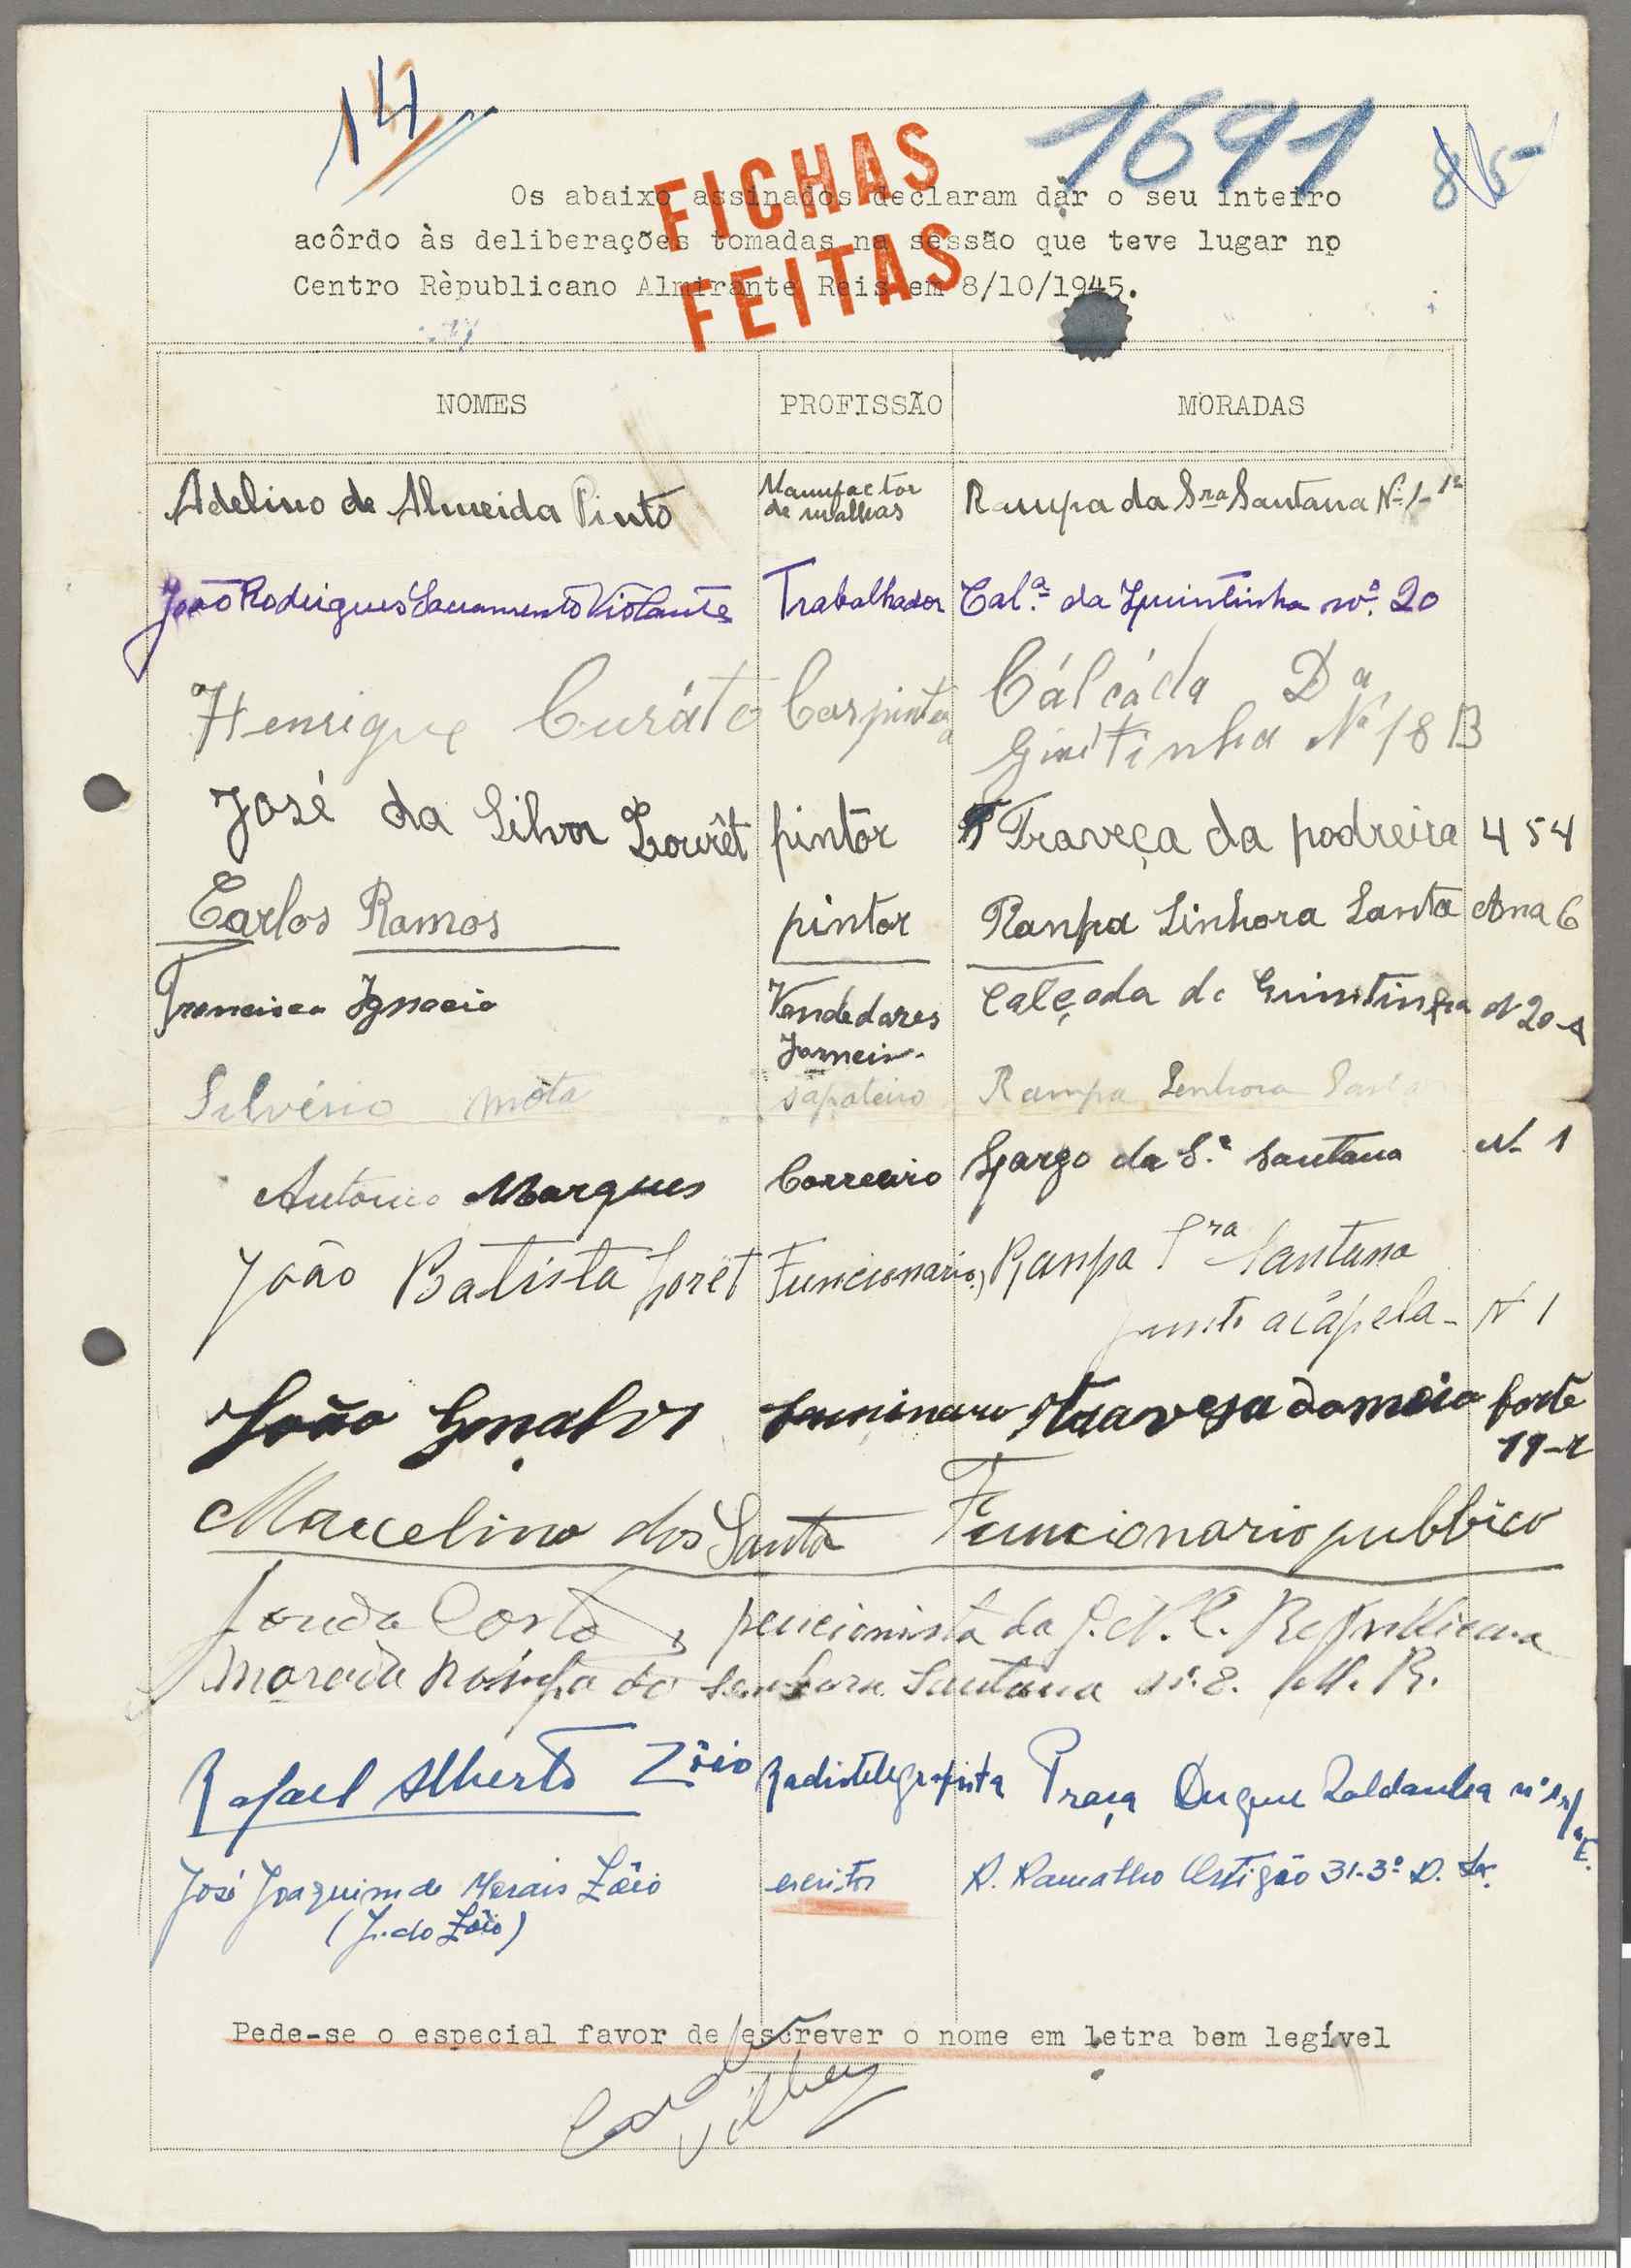 14
1691
FICHAS
FEITAS
Os abaixo assinados declaram dar o seu inteiro
acôrdo às deliberações tomadas na sessão que teve lugar no
Centro Rèpublicano Almirante Reis em 8/10/1945.
NOMES PROFISSÃO MORADAS
Adelino de Almeida Pinto Manufactor de malhas Rampa da Sra Santana Nº 1-1º
João Rodrigues Sacramento Violante Trabalhador Cal.ª da Quintinha nº. 20
Henrique Curáto Carpinteiro Cálcáda Dª
Quitinha Nº 18 B
José da Silva Lourêt pintor Traveça da podreira 4 54
Carlos Ramos pintor Ranpa Sinhora Santa Ana 6
Francisco Ignacio Vendedores Calçada da Quintinha N 20-A
Jorneis.
Silvério Mota sapateiro Rampa Senhora Santa
António Marques Correeiro Largo da S.ª Santana N. 1
João Batista Loret Funcionario, Ranpa Sra Santana
junto acápela - N 1
João travesa do meio forte
19-
Marcelino dos Santos Funcionario pubblico
Costa, pencionista da G. N. R. Republicana
Morada Rampa da Senhora Santana nº. 8. M. R.
Rafael Alberto Zôio Radiotelegrafista Praça Duque Saldanha nº
José Joaquim de Morais Zôio escritor R. Ramalho Ortigão 31-3º D. Lx.
(J. do Zôio)
Pede-se o especial favor de escrever o nome em letra bem legível